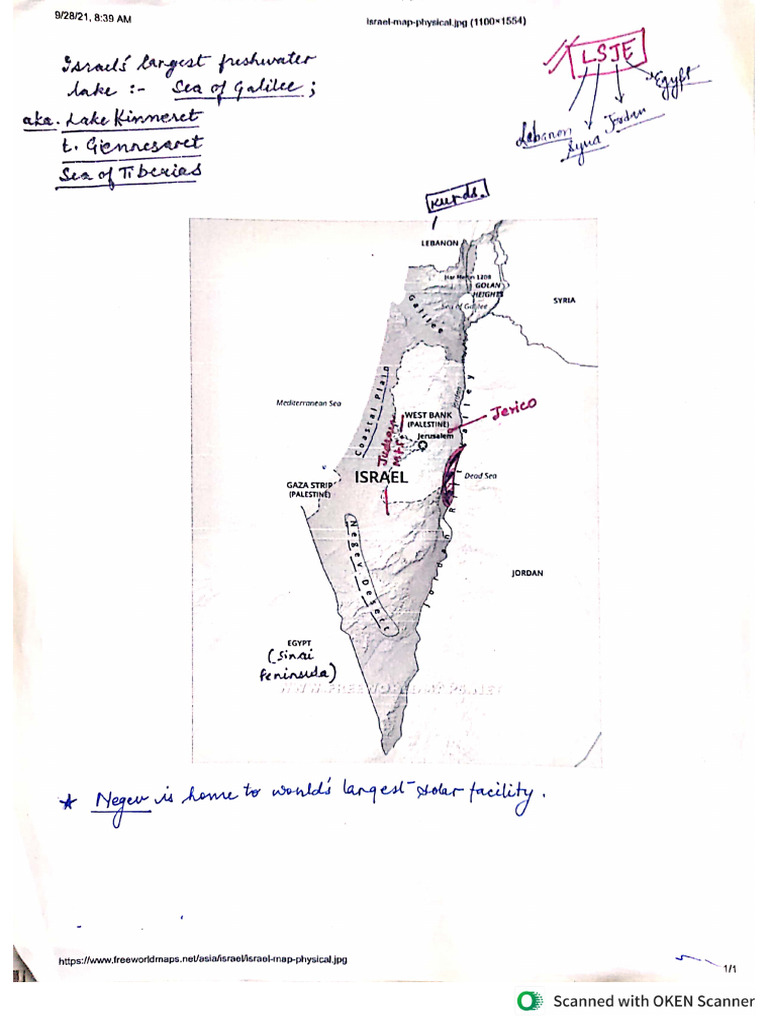 9/28/21, 8:39 AM
israel-map-physical.jpg (1100×1554)
Israel's largest freshwater
lake :- Sea of Galilee ;
aka. Lake Kinneret
t. Gennesaret
Sea of Tiberias
LSJE
Egypt
Jordan
Lebanon
Syria
Kurds.
LEBANON
GOLAN
HEIGHTS
Sea of Galilee
Galilee
SYRIA
Mediterranean Sea
Coastal Plain
WEST BANK
(PALESTINE)
Jerusalem
Jerico
Judean
Mts.
ISRAEL
GAZA STRIP
(PALESTINE)
Dead Sea
Jordan Rift Valley
Negev Desert
JORDAN
EGYPT
(Sinai
Peninsula)
WWW.FREEWORLDMAPS.NET
* Negev is home to world's largest solar facility.
https://www.freeworldmaps.net/asia/israel/israel-map-physical.jpg
1/1
Scanned with OKEN Scanner